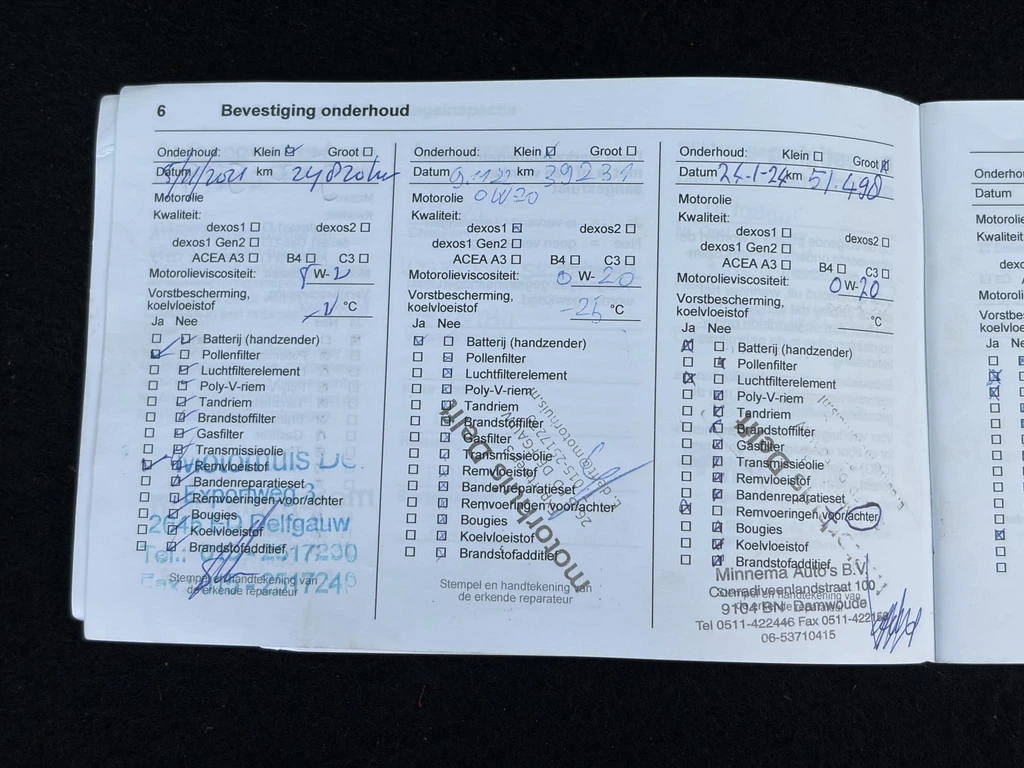 6 Bevestiging onderhoud
Onderhoud: Klein Groot
Datum 5/11/2021 km 24820 km
Motorolie
Kwaliteit:
dexos1 dexos2
dexos1 Gen2
ACEA A3 B4 C3
Motorolieviscositeit: W-
Vorstbescherming,
koelvloeistof °C
Ja Nee
Batterij (handzender)
Pollenfilter
Luchtfilterelement
Poly-V-riem
Tandriem
Brandstoffilter
Gasfilter
Transmissieolie
Remvloeistof
Bandenreparatieset
Remvoeringen voor/achter
Bougies
Koelvloeistof
Brandstofadditief
Motorhuis De
Exportweg 3
2645 ED Delfgauw
Tel.: - 2517230
Fax - 2517240
Stempel en handtekening van
de erkende reparateur
Onderhoud: Klein Groot
Datum km 39231
Motorolie 0W20
Kwaliteit:
dexos1 dexos2
dexos1 Gen2
ACEA A3 B4 C3
Motorolieviscositeit: 0 W-20
Vorstbescherming,
koelvloeistof -25 °C
Ja Nee
Batterij (handzender)
Pollenfilter
Luchtfilterelement
Poly-V-riem
Tandriem
Brandstoffilter
Gasfilter
Transmissieolie
Remvloeistof
Bandenreparatieset
Remvoeringen voor/achter
Bougies
Koelvloeistof
Brandstofadditief
motorhuis Delft
Stempel en handtekening van
de erkende reparateur
Onderhoud: Klein Groot
Datum 24-1-24 km 51.490
Motorolie
Kwaliteit:
dexos1 dexos2
dexos1 Gen2
ACEA A3 B4 C3
Motorolieviscositeit: 0 W-20
Vorstbescherming,
koelvloeistof °C
Ja Nee
Batterij (handzender)
Pollenfilter
Luchtfilterelement
Poly-V-riem
Tandriem
Brandstoffilter
Gasfilter
Transmissieolie
Remvloeistof
Bandenreparatieset
Remvoeringen voor/achter
Bougies
Koelvloeistof
Brandstofadditief
Minnema Auto's B.V.
Conradi veenlandstraat 100
Stempel en handtekening van
de erkende reparateur
9104 BN Damwoude
Tel 0511-422446 Fax 0511-422
06-53710415
Onderhoud
Datum
Motorolie
Kwaliteit:
Motoroli
Vorstbes
koelvloe
Ja Ne